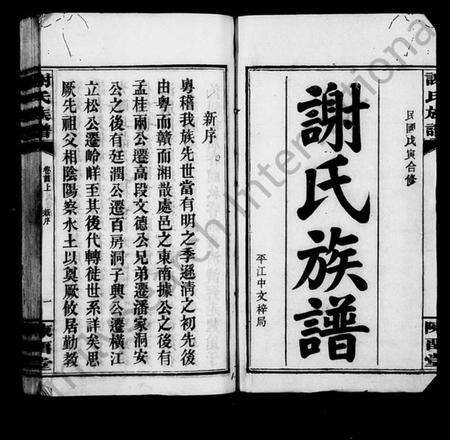 謝氏族譜
民國戊寅合修
謝氏族譜
平江中文梓局
陳留堂
新序
粵稽我族先世當有明之季遜清之初先後
由粵而贛而湘散處邑之東南據公之後有
孟桂兩公遷高段文德公兄弟遷潘家洞安
公之後有廷潤公遷百房洞子興公遷橫江
立松公遷岭畔至其後代轉徙世系詳矣思
厥先祖父相陰陽察水土以奠厥攸居勤教
謝氏族譜
卷首上
新序
一
陳留堂